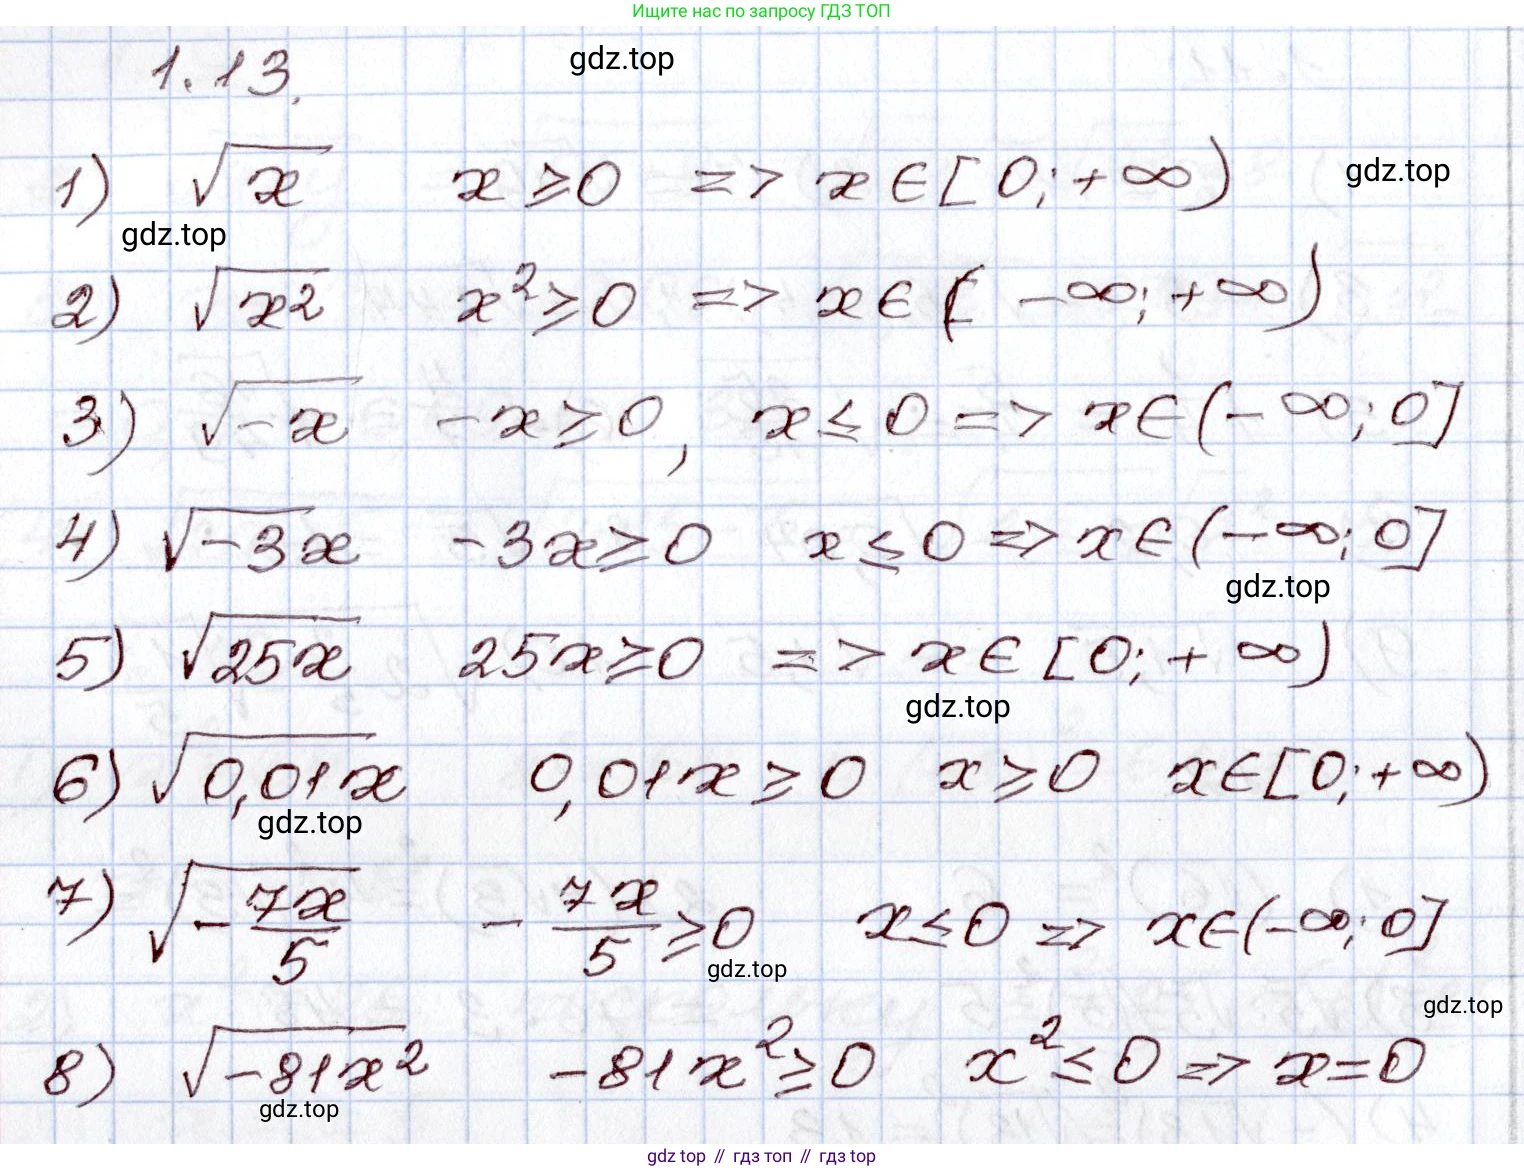 Ищите нас по запросу ГДЗ ТОП
1.13.
gdz.top
1) √x x ≥ 0 => x ∈ [0; +∞)
gdz.top
gdz.top
2) √x² x² ≥ 0 => x ∈ (-∞; +∞)
3) √-x -x ≥ 0, x ≤ 0 => x ∈ (-∞; 0]
4) √-3x -3x ≥ 0 x ≤ 0 => x ∈ (-∞; 0]
gdz.top
5) √25x 25x ≥ 0 => x ∈ [0; +∞)
gdz.top
6) √0,01x 0,01x ≥ 0 x ≥ 0 x ∈ [0; +∞)
gdz.top
7) √-7x/5 -7x/5 ≥ 0 x ≤ 0 => x ∈ (-∞; 0]
gdz.top
gdz.top
8) √-81x² -81x² ≥ 0 x² ≤ 0 => x = 0
gdz.top
gdz top // гдз топ // гдз top